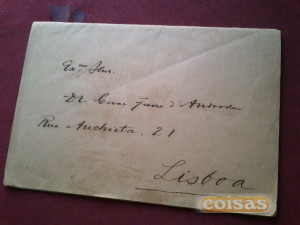 Ex.mo Snr.
Dr. d'Andrade
Rua Anchieta. 21
Lisboa
coisas